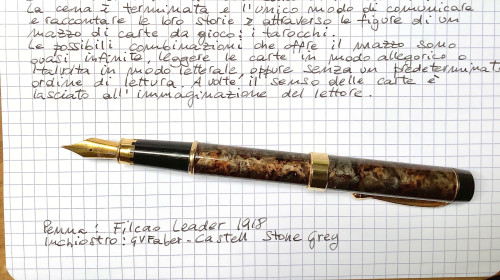 La cena è terminata e l'unico modo di comunicare
e raccontare le loro storie è attraverso le figure di un
mazzo di carte da gioco: i tarocchi.
Le possibili combinazioni che offre il mazzo sono
quasi infinite, leggere le carte in modo allegorico o
talvolta in modo letterale, oppure senza un predeterminato
ordine di lettura. A volte, il senso delle carte è
lasciato all'immaginazione del lettore.
Penna: Filcao Leader 1918
Inchiostro: GVFaber-Castell Stone Grey